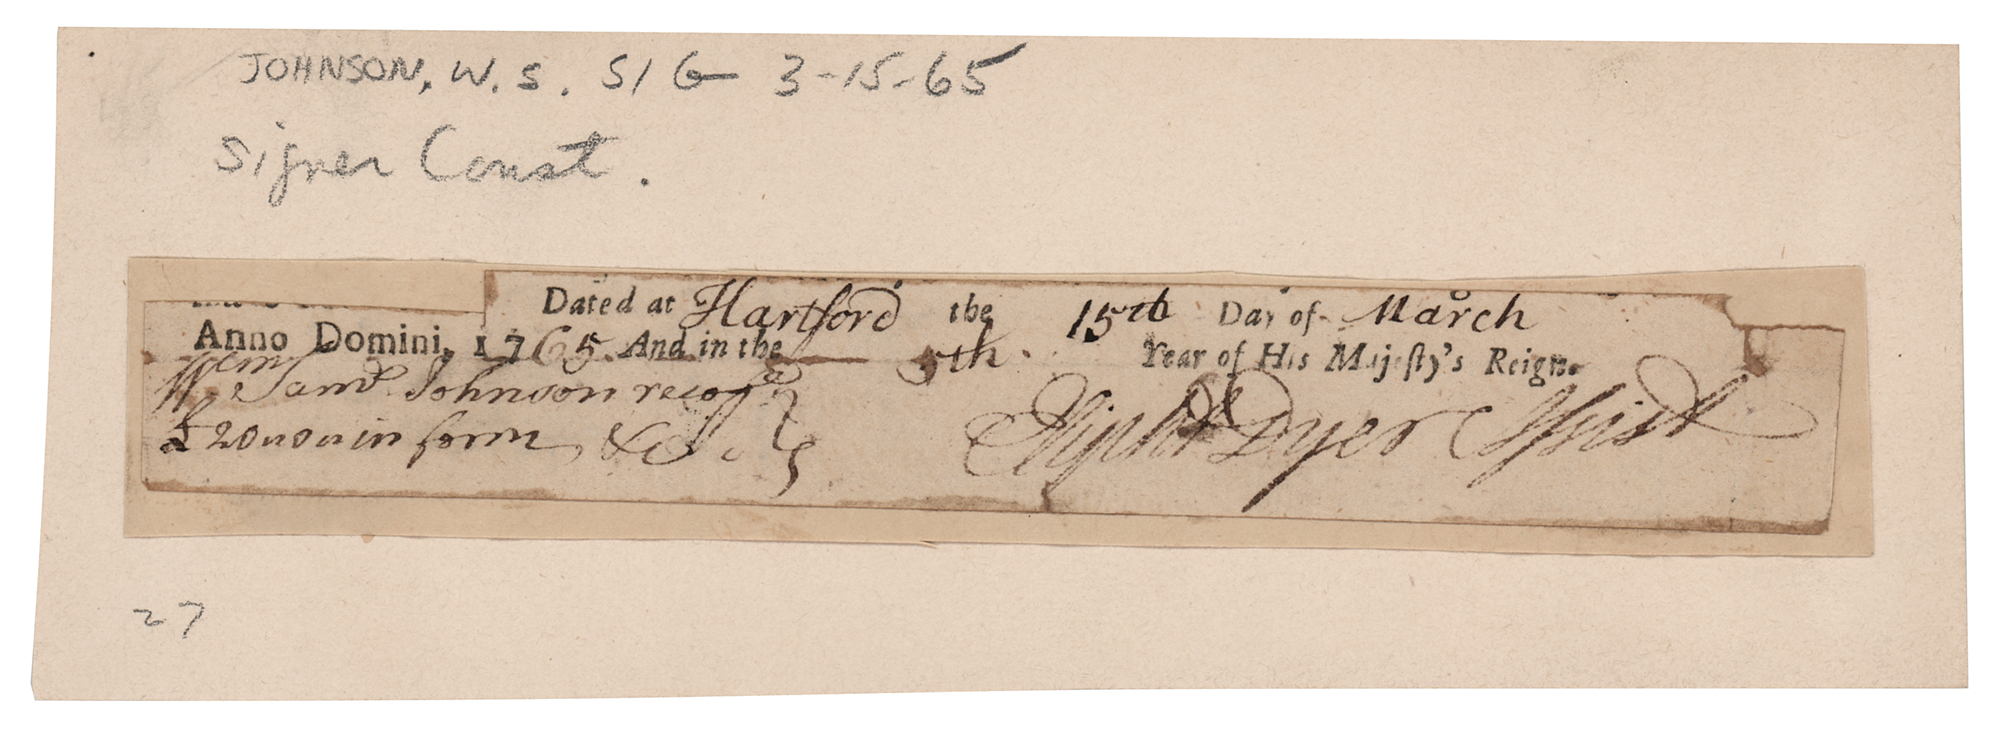 JOHNSON, W. S. SIG 3-15-65
Signer Const.
Dated at Hartford the 15th Day of March
Anno Domini, 1765. And in the 5th. Year of His Majesty's Reign.
Wm Saml Johnson recogd
£20 in form &c
Eliphlt Dyer Assist
27